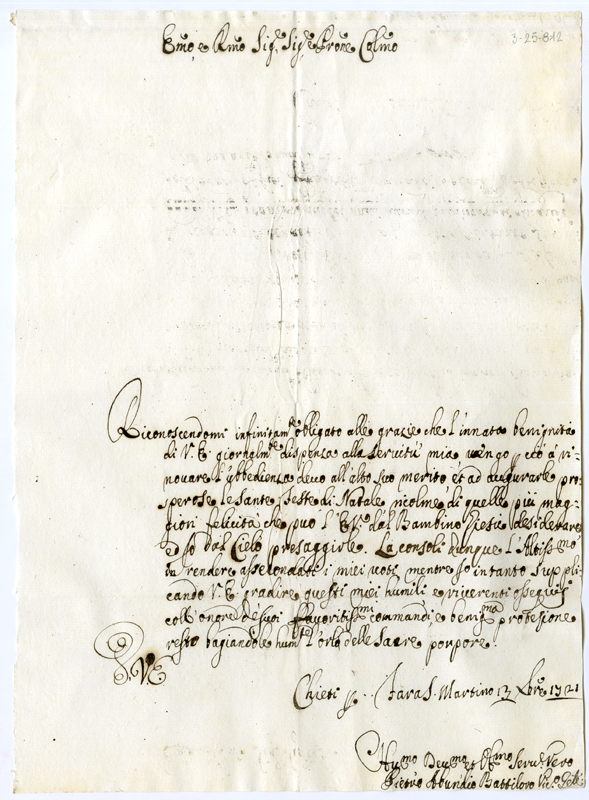 3-25-812
Emo, e Rmo Sig.r Sig.re Prone Colmo
Riconoscendomi infinitam.te obbligato alle grazie che l'innata benignità
di V. E. giornalm.te dispenza alla servitù mia vengo à ri=
nouare l'ubbedienza deuo all'alto suo merito et ad augurarle pro=
sperose le sante feste di Natale ricolme di quelle più mag=
giori felicità che può l'E.V. dal Bambino desiderare
e Io dal Cielo presaggirle. La consoli dunque l'Altiss.mo
in rendere assecondati i miei uoti mentre Io intanto suppli=
cando V. E. gradire questi miei humili e riuerenti ossequij
coll'onore de suoi fauoritiss.mi commandi, e benig.ma protesione
resto bagiandole hum.te l'orlo delle sacre porpore.
D. V. E.
Chieti Fara S. Martino 13 Xbre 1721
Hu.mo Deu.mo et Ob.mo Seru.e Vero
Pietro Abundio Battiloro Vic.o